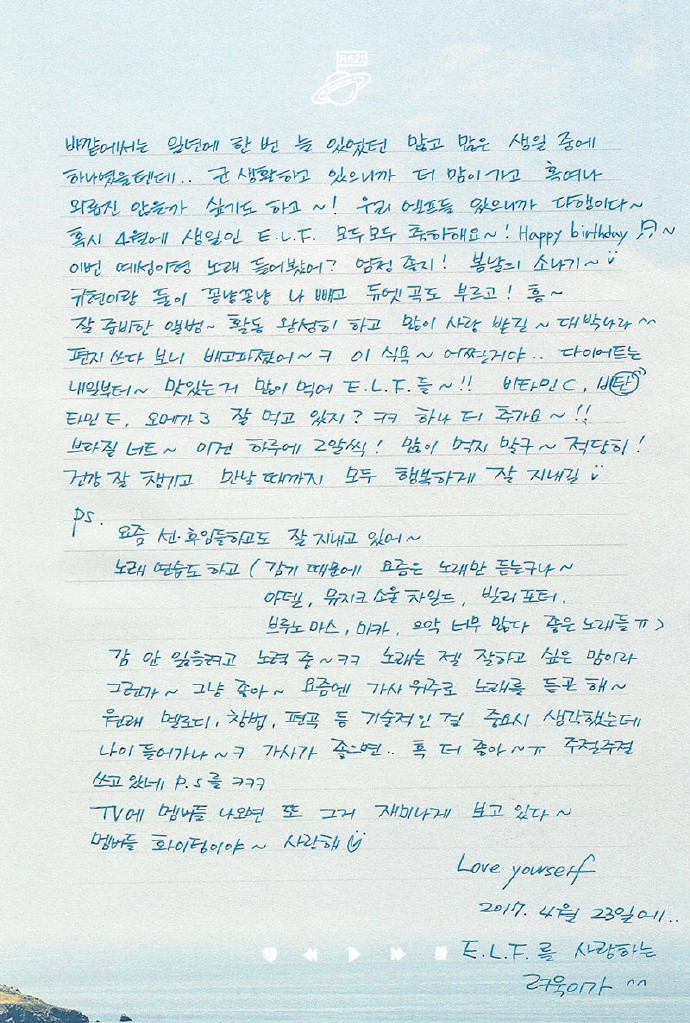 R621
바깥에서는 일년에 한 번 늘 있었던 많고 많은 생일 중에
하나였을텐데.. 군 생활하고 있으니까 더 맘이 가고 혹여나
외롭진 않을까 싶기도 하고~! 우리 엘프들 있으니까 다행이다~
혹시 4월에 생일인 E.L.F. 모두모두 축하해요~! Happy birthday ~
이번 예성이형 노래 들어봤어? 엄청 좋지! 봄날의 소나기~
규현이랑 둘이 꽁냥꽁냥 나 빼고 듀엣곡도 부르고! 흥~
잘 준비한 앨범~ 활동 왕성히 하고 많이 사랑 받길~ 대박나라 ^^
편지 쓰다 보니 배고파졌어~ㅋ 이 식욕~ 어쩔거야.. 다이어트는
내일부터~ 맛있는거 많이 먹어 E.L.F.들~!! 비타민C, 비탄
타민E, 오메가3 잘 먹고 있지? ㅋㅋ 하나 더 추가요~!!
브라질 너트~ 이건 하루에 2알씩! 많이 먹지 말구~ 적당히!
건강 잘 챙기고 만날 때까지 모두 행복하게 잘 지내길
ps.
요즘 선·후임들하고도 잘 지내고 있어~
노래 연습도 하고 (감기 때문에 요즘은 노래만 듣는구나~
아델, 뮤지크 소울 차일드, 빌리 포터,
브루노 마스, 미카, 으악 너무 많다 좋은 노래들 ㅠ)
감 안 잃을려고 노력 중~ㅋㅋ 노래는 젤 잘하고 싶은 맘이라
그런가~ 그냥 좋아~ 요즘엔 가사 위주로 노래를 듣곤 해~
원래 멜로디, 창법, 편곡 등 기술적인 걸 중요시 생각했는데
나이 들어가나~ㅋ 가사가 좋으면.. 훅 더 좋아~ㅠ 주절주절
쓰고 있네 P.S를 ㅋㅋㅋ
TV에 멤버들 나오면 또 그거 재미나게 보고 있다~
멤버들 화이팅이야~ 사랑해
Love yourself
2017. 4월 23일에..
E.L.F.를 사랑하는
려욱이가 ^^